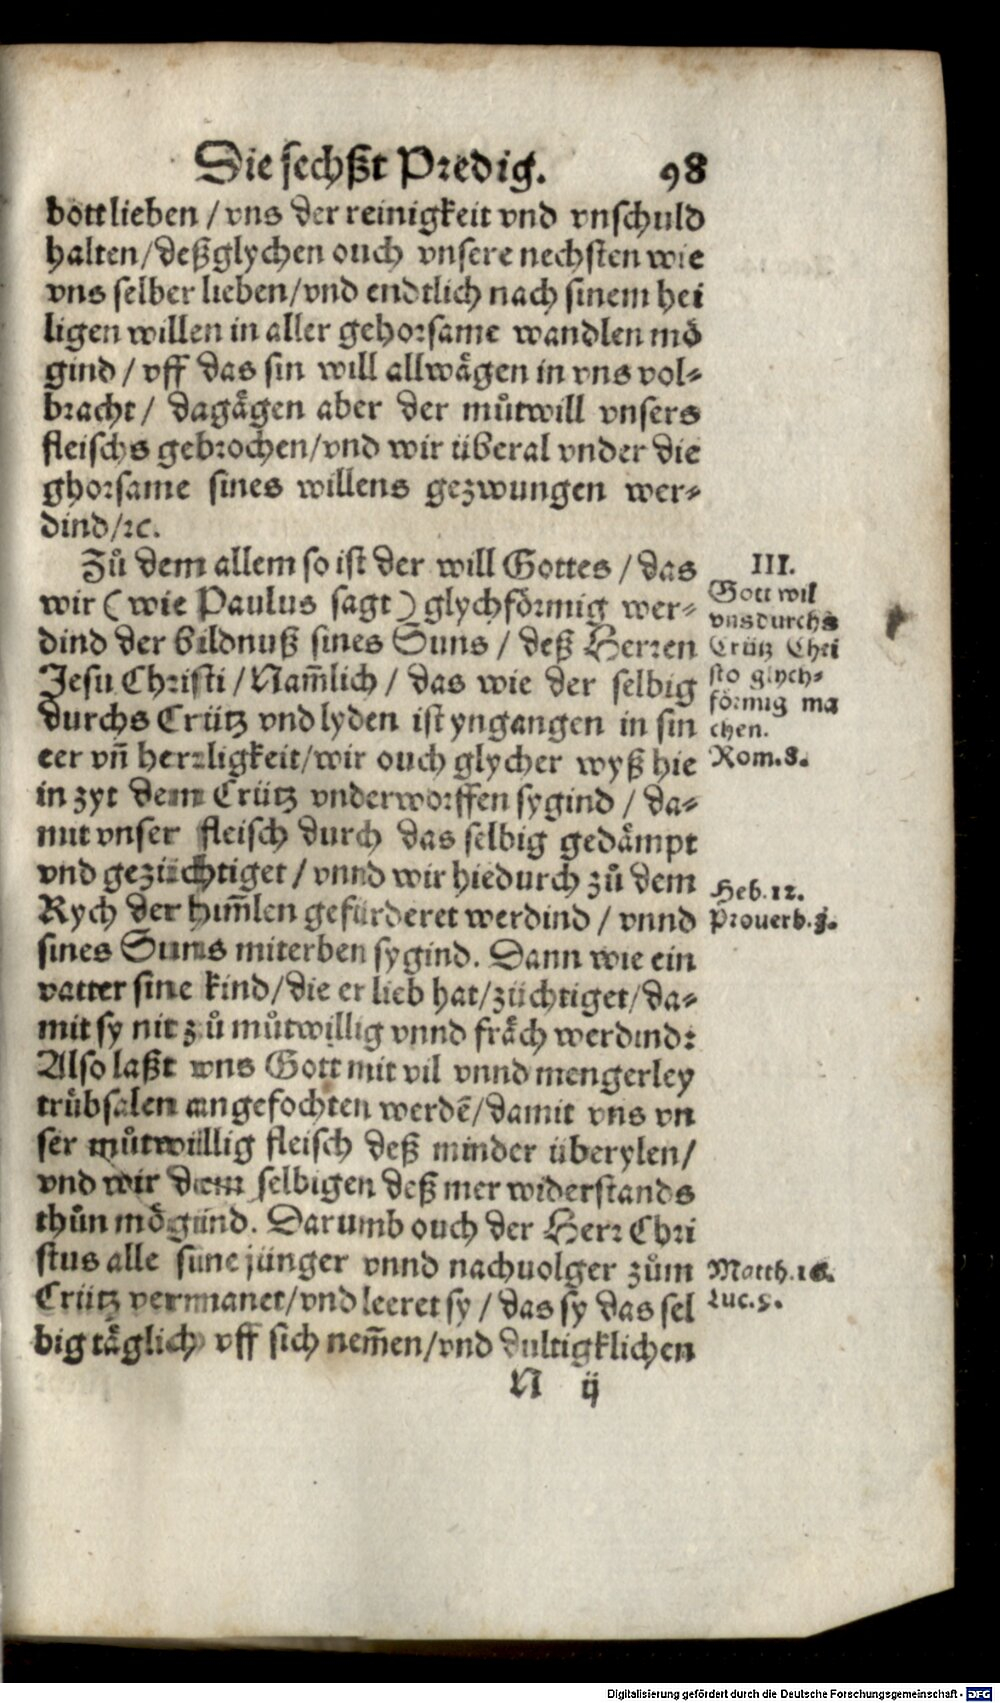 Die sechßt Predig. 98
bott lieben / vns der reinigkeit vnd vnschuld
halten / deßglychen ouch vnsere nechsten wie
vns selber lieben / vnd endtlich nach sinem hei
ligen willen in aller gehorsame wandlen mö
gind / vff das sin will allwägen in vns vol-
bracht / dagägen aber der můtwill vnsers
fleischs gebrochen / vnd wir überal vnder die
ghorsame sines willens gezwungen wer-
dind / ꝛc.
Zů dem allem so ist der will Gottes / das
wir ( wie Paulus sagt ) glychförmig wer-
dind der bildnuß sines Suns / deß Herren
Jesu Christi / Nam̄lich / das wie der selbig
durchs Crütz vnd lyden ist yngangen in sin
eer vn̄ herrligkeit / wir ouch glycher wyß hie
in zyt dem Crütz vnderworffen sygind / da-
mit vnser fleisch durch das selbig gedämpt
vnd gezüchtiget / vnnd wir hiedurch zů dem
Rych der him̄len gefürderet werdind / vnnd
sines Suns miterben sygind. Dann wie ein
vatter sine kind / die er lieb hat / züchtiget / da-
mit sy nit zů můtwillig vnnd fräch werdind:
Also laßt vns Gott mit vil vnnd mengerley
trübsalen angefochten werdē / damit vns vn
ser můtwillig fleisch deß minder überylen /
vnd wir dem selbigen deß mer widerstands
thůn mögind. Darumb ouch der Herr Chri
stus alle sine jünger vnnd nachuolger zům
Crütz vermanet / vnd leeret sy / das sy das sel
big täglich vff sich nem̄en / vnd dultigklichen
N ij
III.
Gott wil
vns durchs
Crütz Chri
sto glych-
förmig ma
chen.
Rom. 8.
Heb. 12.
Prouerb. 3.
Matth. 16.
Luc. 9.
Digitalisierung gefördert durch die Deutsche Forschungsgemeinschaft - DFG